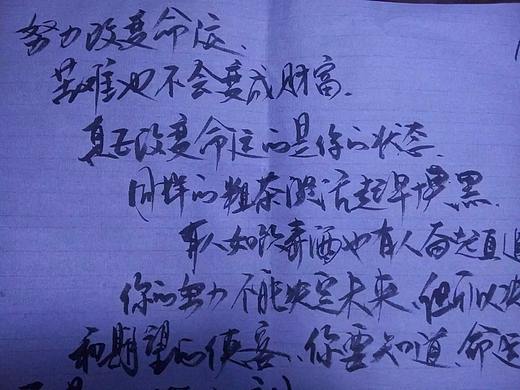 努力改变命运、
苦难也不会变成财富.
真正改变命运的是你的状态.
同样的粗茶淡活起早摸黑.
有人如饮弄酒也有人奋起直追
你的努力不能决定未来、但可以决
和期望的使客、你要知道、命运